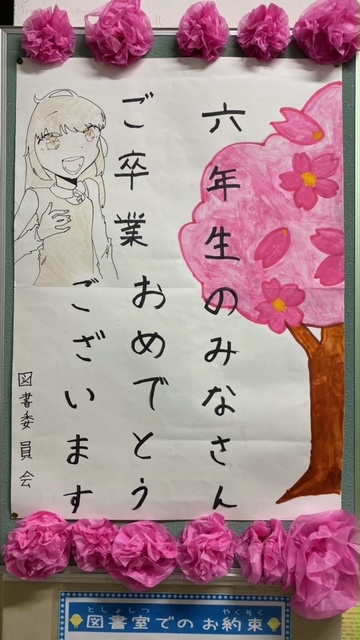 六年生のみなさん
ご卒業おめでとう
ございます
図書委員会
としょしつ やくそく
図書室でのお約束